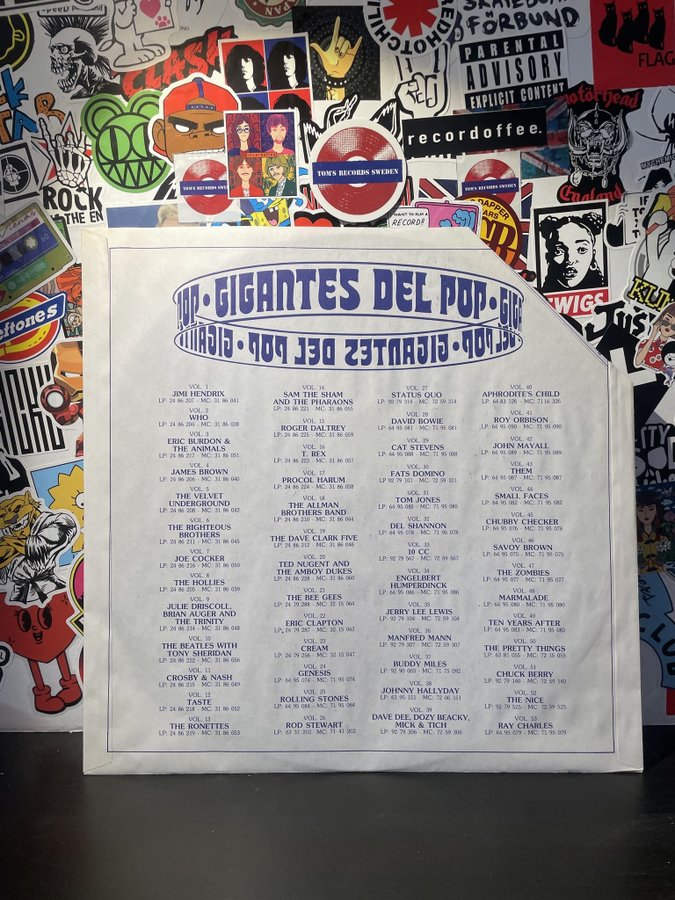 CLASH
REDHOTCHILI
SKATEBOARD
FÖRBUND
PARENTAL
ADVISORY
EXPLICIT CONTENT
FLAG
Motörhead
England
recordoffee.
TOM'S RECORDS SWEDEN
TOM'S RECORDS SWEDEN
ROCK
WANT TO PLAY A
RECORD?
TWIGS
eftones
GIGANTES DEL POP
GIGANTES DEL POP
VOL. 1
JIMI HENDRIX
LP: 24 86 207 - MC: 31 86 041
VOL. 2
WHO
LP: 24 86 204 - MC: 31 86 038
VOL. 3
ERIC BURDON &
THE ANIMALS
LP: 24 86 217 - MC: 31 86 051
VOL. 4
JAMES BROWN
LP: 24 86 206 - MC: 31 86 040
VOL. 5
THE VELVET
UNDERGROUND
LP: 24 86 208 - MC: 31 86 042
VOL. 6
THE RIGHTEOUS
BROTHERS
LP: 24 86 211 - MC: 31 86 045
VOL. 7
JOE COCKER
LP: 24 86 216 - MC: 31 86 050
VOL. 8
THE HOLLIES
LP: 24 86 205 - MC: 31 86 039
VOL. 9
JULIE DRISCOLL,
BRIAN AUGER AND
THE TRINITY
LP: 24 86 214 - MC: 31 86 048
VOL. 10
THE BEATLES WITH
TONY SHERIDAN
LP: 24 86 222 - MC: 31 86 056
VOL. 11
CROSBY & NASH
LP: 24 86 215 - MC: 31 86 049
VOL. 12
TASTE
LP: 24 86 218 - MC: 31 86 052
VOL. 13
THE RONETTES
LP: 24 86 219 - MC: 31 86 053
VOL. 14
SAM THE SHAM
AND THE PHARAONS
LP: 24 86 221 - MC: 31 86 055
VOL. 15
ROGER DALTREY
LP: 24 86 225 - MC: 31 86 059
VOL. 16
T. REX
LP: 24 86 223 - MC: 31 86 057
VOL. 17
PROCOL HARUM
LP: 24 86 224 - MC: 31 86 058
VOL. 18
THE ALLMAN
BROTHERS BAND
LP: 24 86 210 - MC: 31 86 044
VOL. 19
THE DAVE CLARK FIVE
LP: 24 86 212 - MC: 31 86 046
VOL. 20
TED NUGENT AND
THE AMBOY DUKES
LP: 24 86 228 - MC: 31 86 060
VOL. 21
THE BEE GEES
LP: 24 79 288 - MC: 32 15 064
VOL. 22
ERIC CLAPTON
LP: 24 79 287 - MC: 32 15 063
VOL. 23
CREAM
LP: 24 79 216 - MC: 32 15 047
VOL. 24
GENESIS
LP: 64 95 074 - MC: 71 95 074
VOL. 25
ROLLING STONES
LP: 64 95 084 - MC: 71 95 084
VOL. 26
ROD STEWART
LP: 63 37 202 - MC: 71 41 262
VOL. 27
STATUS QUO
LP: 92 79 314 - MC: 72 59 314
VOL. 28
DAVID BOWIE
LP: 64 95 081 - MC: 71 95 081
VOL. 29
CAT STEVENS
LP: 64 95 088 - MC: 71 95 088
VOL. 30
FATS DOMINO
LP: 92 79 101 - MC: 72 59 101
VOL. 31
TOM JONES
LP: 64 95 085 - MC: 71 95 085
VOL. 32
DEL SHANNON
LP: 64 95 078 - MC: 71 95 078
VOL. 33
10 CC
LP: 92 79 567 - MC: 72 59 567
VOL. 34
ENGELBERT
HUMPERDINCK
LP: 64 95 086 - MC: 71 95 086
VOL. 35
JERRY LEE LEWIS
LP: 92 79 104 - MC: 72 59 104
VOL. 36
MANFRED MANN
LP: 92 79 307 - MC: 72 59 307
VOL. 37
BUDDY MILES
LP: 92 90 003 - MC: 71 75 092
VOL. 38
JOHNNY HALLYDAY
LP: 63 95 151 - MC: 72 06 151
VOL. 39
DAVE DEE, DOZY BEACKY,
MICK & TICH
LP: 92 79 306 - MC: 72 59 306
VOL. 40
APHRODITE'S CHILD
LP: 64 83 326 - MC: 71 16 326
VOL. 41
ROY ORBISON
LP: 64 95 090 - MC: 71 95 090
VOL. 42
JOHN MAYALL
LP: 64 95 089 - MC: 71 95 089
VOL. 43
THEM
LP: 64 95 087 - MC: 71 95 087
VOL. 44
SMALL FACES
LP: 64 95 082 - MC: 71 95 082
VOL. 45
CHUBBY CHECKER
LP: 64 95 076 - MC: 71 95 076
VOL. 46
SAVOY BROWN
LP: 64 95 075 - MC: 71 95 075
VOL. 47
THE ZOMBIES
LP: 64 95 077 - MC: 71 95 077
VOL. 48
MARMALADE
LP: 64 95 080 - MC: 71 95 080
VOL. 49
TEN YEARS AFTER
LP: 64 95 083 - MC: 71 95 083
VOL. 50
THE PRETTY THINGS
LP: 63 81 055 - MC: 72 15 055
VOL. 51
CHUCK BERRY
LP: 92 79 140 - MC: 72 59 140
VOL. 52
THE NICE
LP: 92 79 525 - MC: 72 59 525
VOL. 53
RAY CHARLES
LP: 64 95 079 - MC: 71 95 079